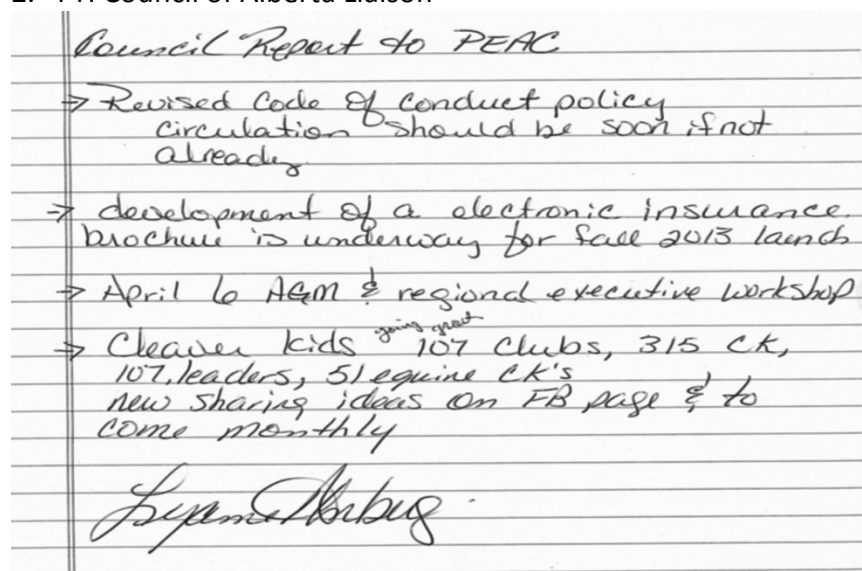 Council Report to PEAC
→ Revised Code of Conduct policy
circulation should be soon if not
already
→ development of a electronic insurance
brochure is underway for fall 2013 launch
→ April 6 AGM & regional executive workshop
going great
→ Cleaver kids 107 Clubs, 315 CK,
107 leaders, 51 equine CK's
new sharing ideas on FB page & to
come monthly